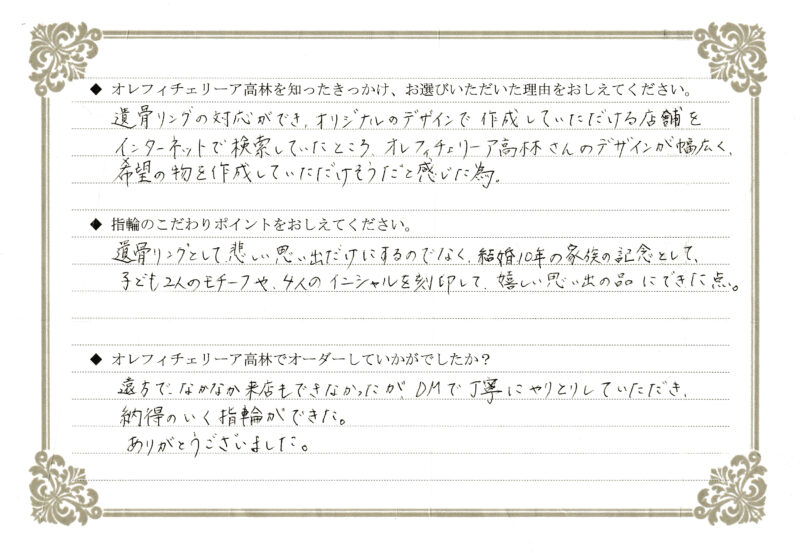 ◆ オレフィチェリーア高林を知ったきっかけ、お選びいただいた理由をおしえてください。
遺骨リングの対応ができ、オリジナルのデザインで作成していただける店舗を
インターネットで検索していたところ、オレフィチェリーア高林さんのデザインが幅広く、
希望の物を作成していただけそうだと感じた為。
◆ 指輪のこだわりポイントをおしえてください。
遺骨リングとして、悲しい思い出だけにするのでなく、結婚10年の家族の記念として、
子ども2人のモチーフや、4人のイニシャルを刻印して、嬉しい思い出の品にできた点。
◆ オレフィチェリーア高林でオーダーしていかがでしたか？
遠方で、なかなか来店もできなかったが、DMで丁寧にやりとりしていただき、
納得のいく指輪ができた。
ありがとうございました。